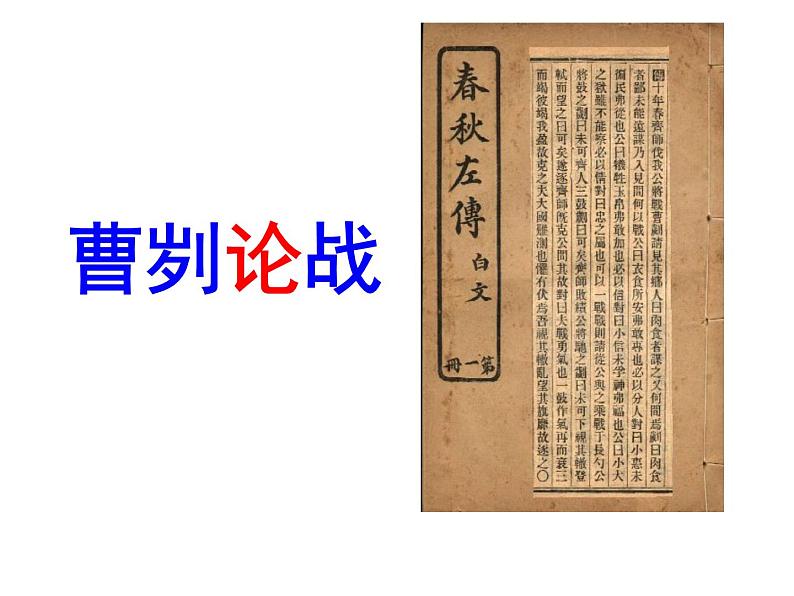 曹刿论战
春秋左傳
白文
第一冊
傳十年春齊師伐我公將戰曹劌請見其鄉人曰肉食者謀之又何間焉劌曰肉食
者鄙未能遠謀乃入見問何以戰公曰衣食所安弗敢專也必以分人對曰小惠未
徧民弗從也公曰犧牲玉帛弗敢加也必以信對曰小信未孚神弗福也公曰小大
之獄雖不能察必以情對曰忠之屬也可以一戰戰則請從公與之乘戰于長勺公
將鼓之劌曰未可齊人三鼓劌曰可矣齊師敗績公將馳之劌曰未可下視其轍登
軾而望之曰可矣遂逐齊師既克公問其故對曰夫戰勇氣也一鼓作氣再而衰三
而竭彼竭我盈故克之夫大國難測也懼有伏焉吾視其轍亂望其旗靡故逐之〇